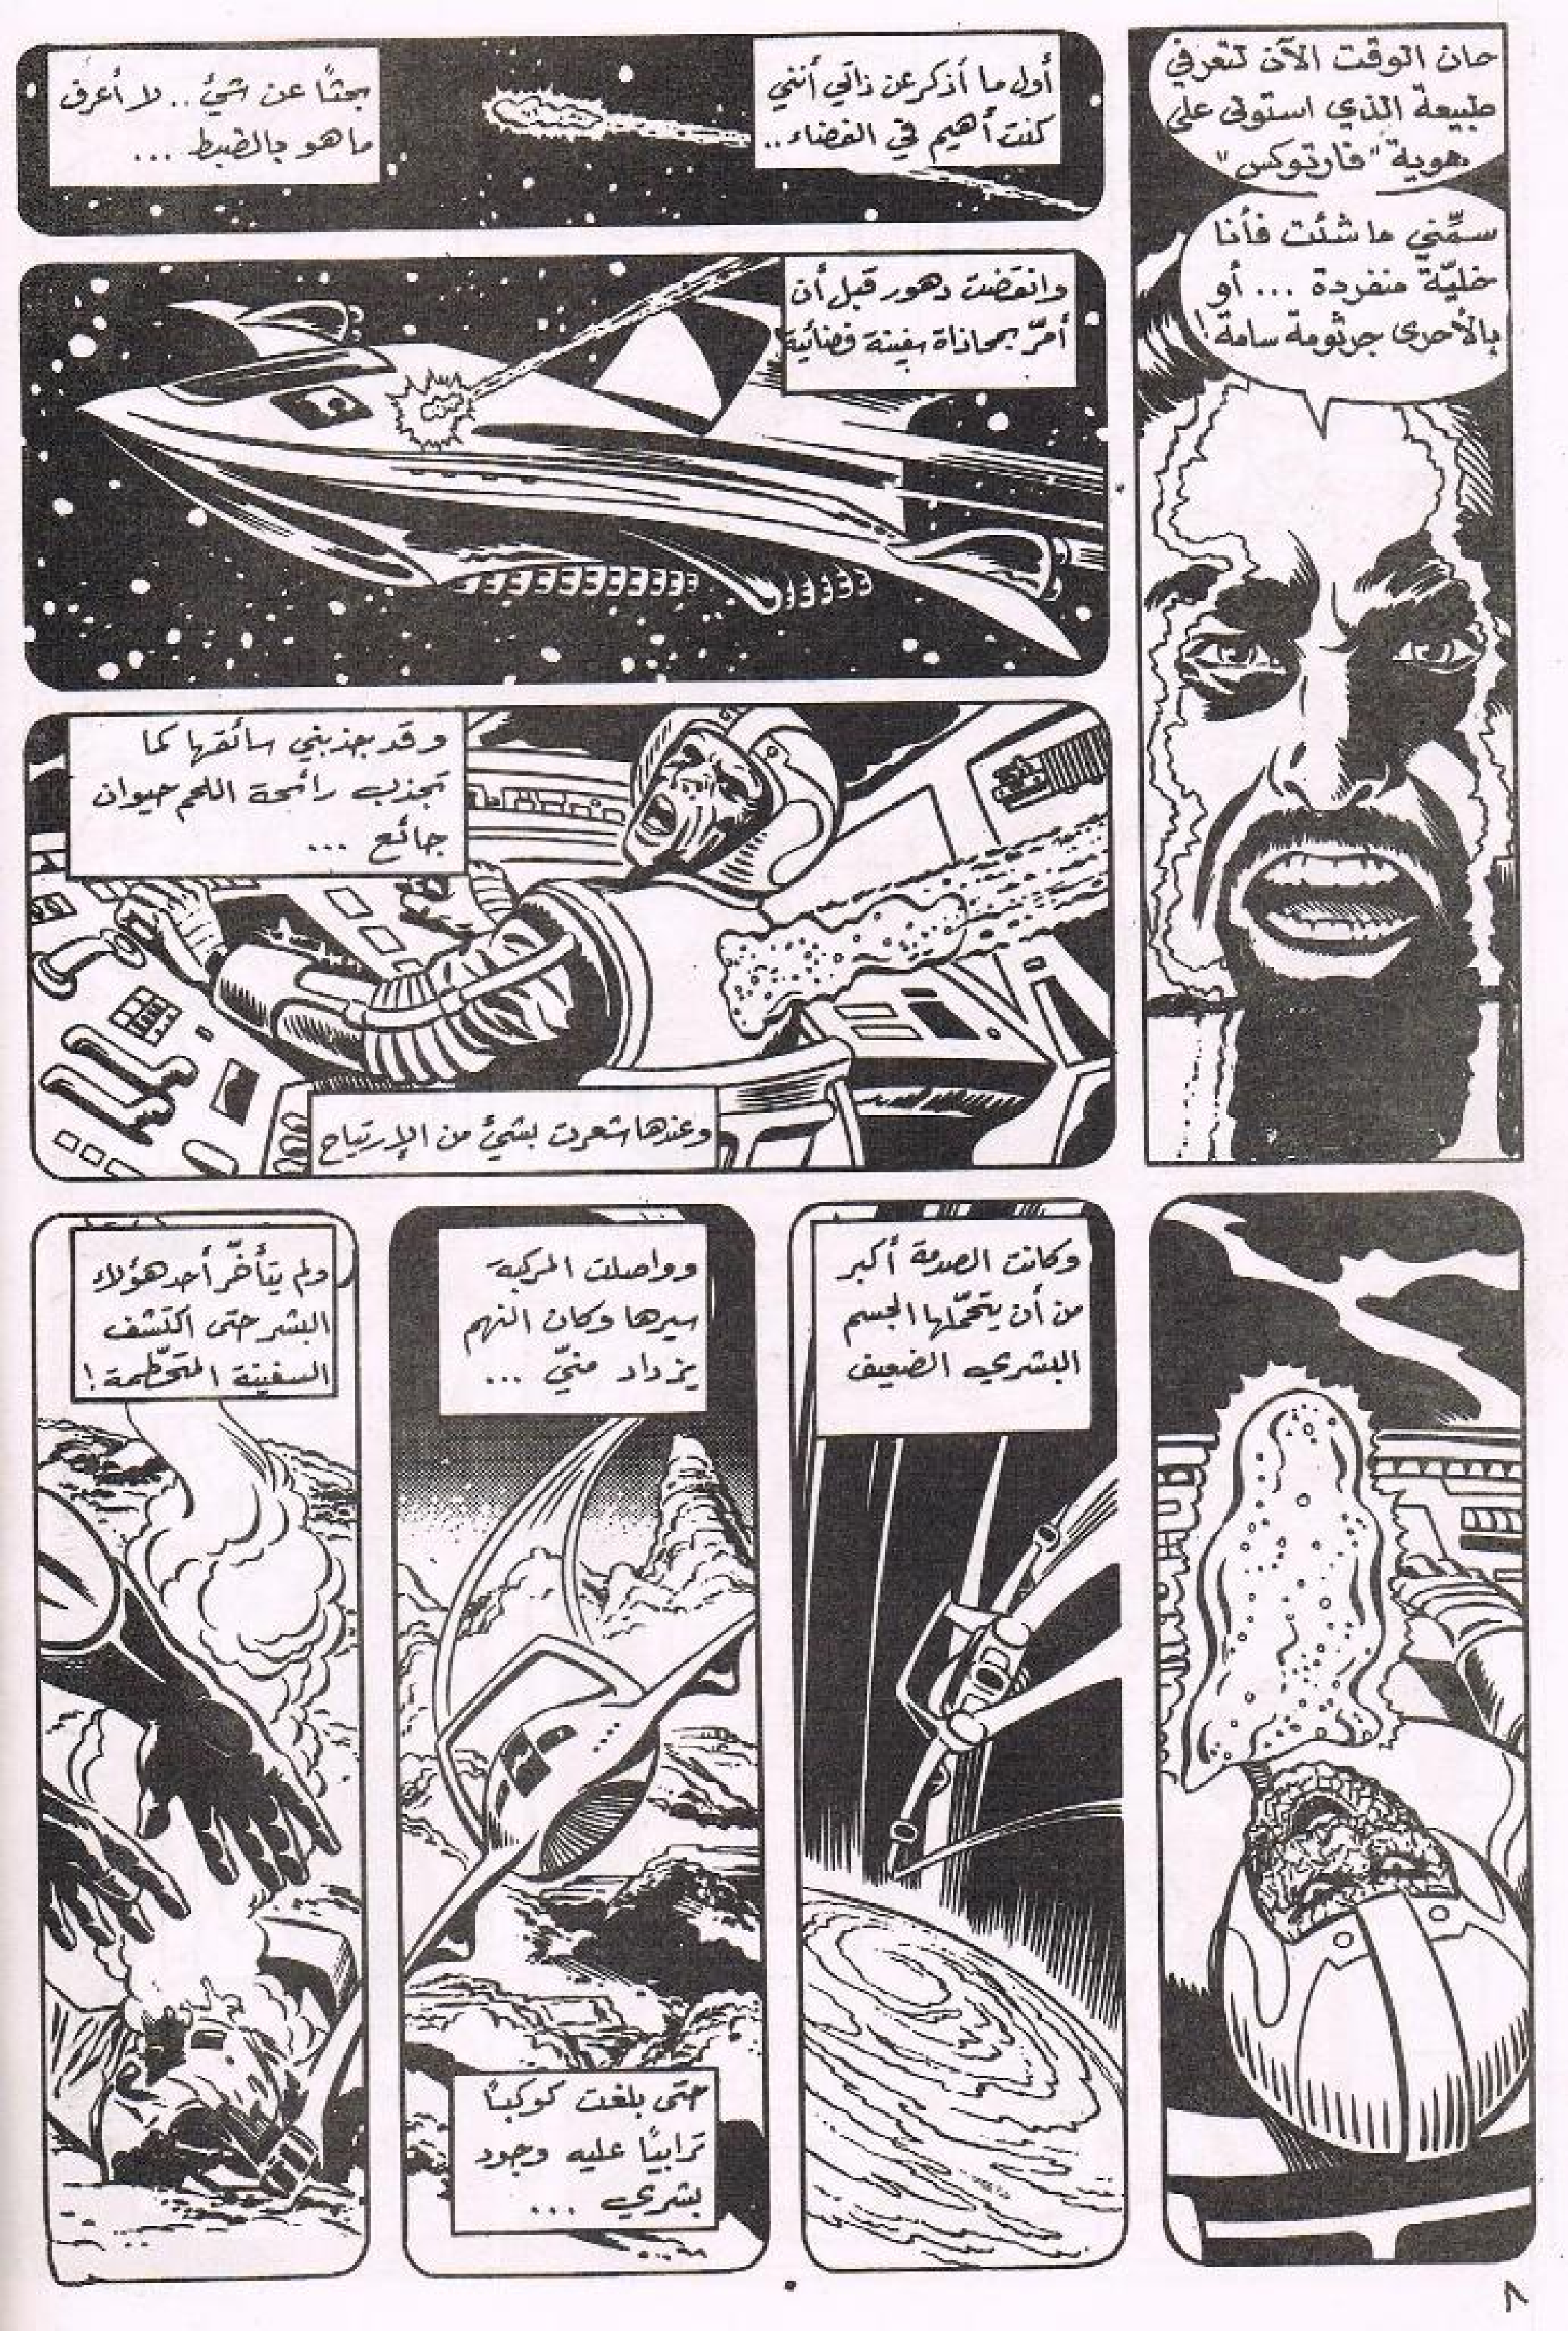 حان الوقت الآن لتعرفي
طبيعة الذي استولى على
هوية "فارتوكس"
سمِّني ما شئت فأنا
خليّة منفردة ... أو
بالأحرى جرثومة سامة!
أول ما أذكر عن ذاتي أنني
كنت أهيم في الفضاء..
بحثًا عن شيْ .. لا أعرف
ما هو بالضبط ...
وانقضت دهور قبل أن
أمرّ بمحاذاة سفينة فضائية
وقد جذبني سائقها كما
تجذب رائحة اللحم حيوان
جائع ...
وعندها شعرت بشيْ من الإرتياح
وكانت الصدمة أكبر
من أن يتحمّلها الجسم
البشري الضعيف
وواصلت المركبة
سيرها وكان النهم
يزداد منيّ ...
حتى بلغت كوكبًا
ترابيًا عليه وجود
بشري ...
ولم يتأخّر أحد هؤلاء
البشر حتى اكتشف
السفينة المتحطّمة!
٧